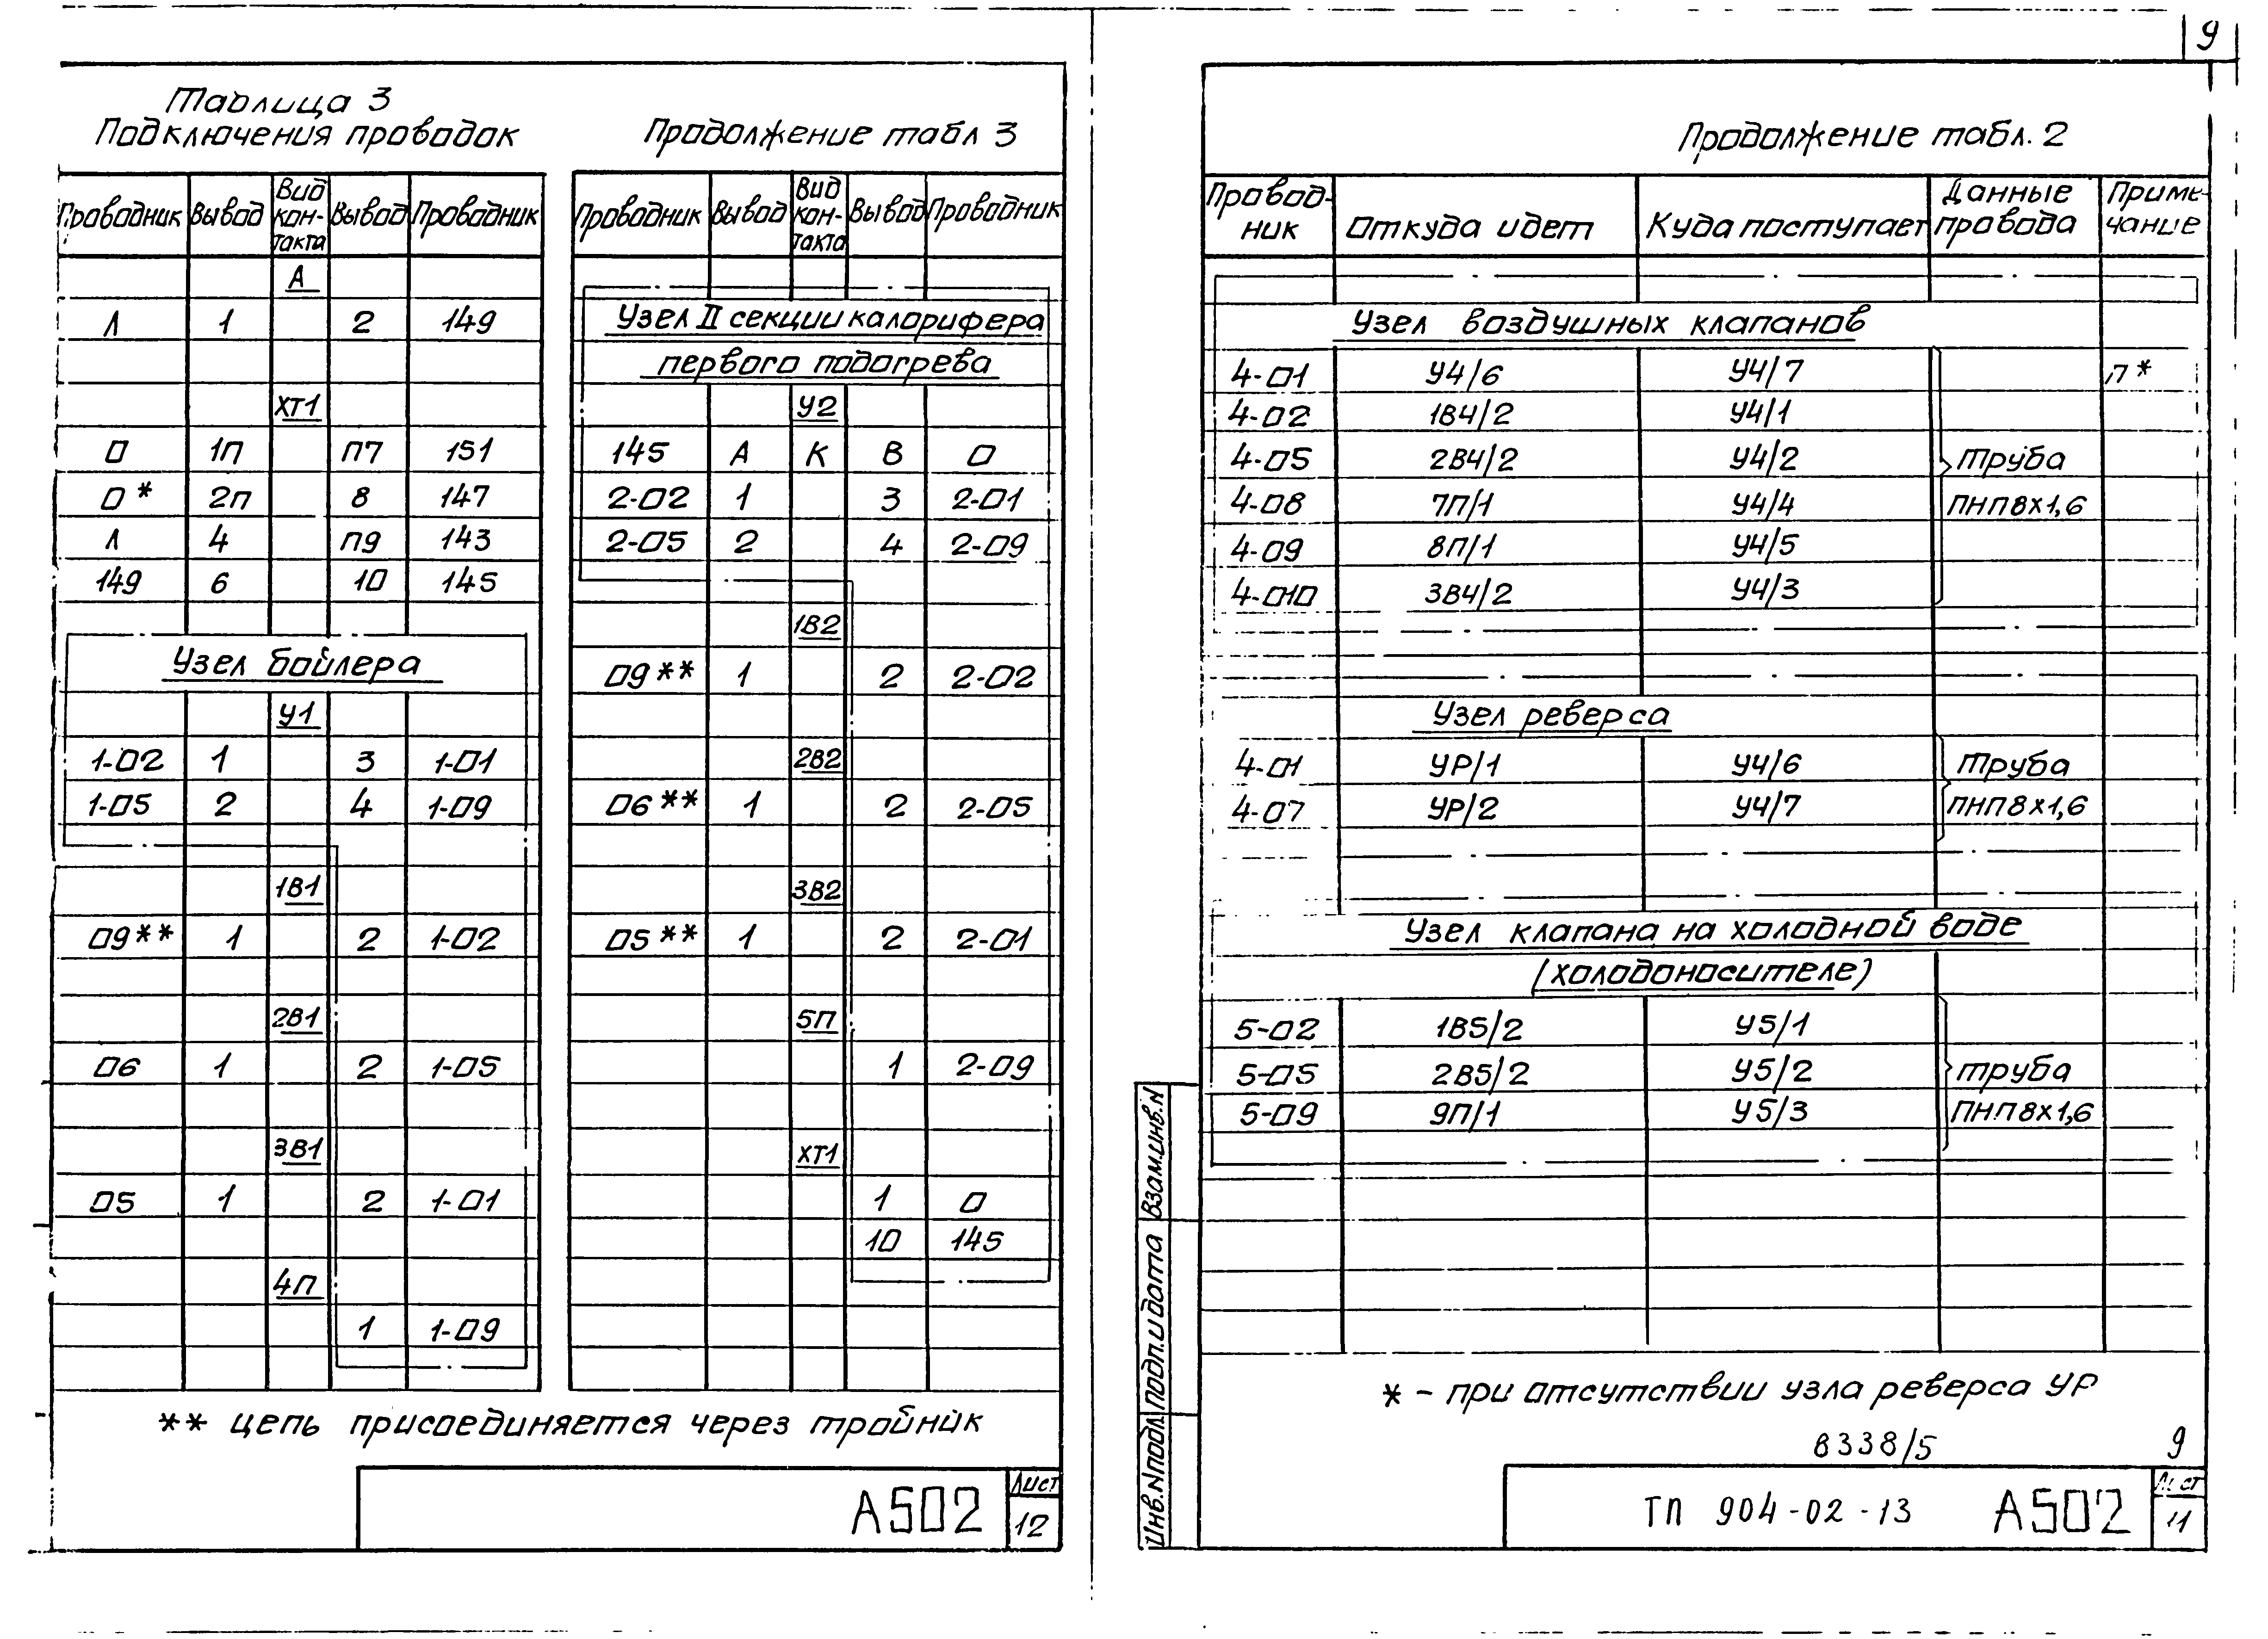 9
Таблица 3
Подключения проводок
Проводник Вывод Вид контакта Вывод Проводник
А
Л 1 2 149
ХТ1
О 1П П7 151
О* 2П 8 147
Л 4 П9 143
149 6 10 145
Узел бойлера
У1
1-02 1 3 1-01
1-05 2 4 1-09
1В1
09** 1 2 1-02
2В1
06 1 2 1-05
3В1
05 1 2 1-01
4П
1 1-09
Продолжение табл 3
Проводник Вывод Вид контакта Вывод Проводник
Узел II секции калорифера
первого подогрева
У2
145 А К В О
2-02 1 3 2-01
2-05 2 4 2-09
1В2
09** 1 2 2-02
2В2
06** 1 2 2-05
3В2
05** 1 2 2-01
5П
1 2-09
ХТ1
1 О
10 145
** цепь присоединяется через тройник
А502
Лист
12
Продолжение табл. 2
Проводник Откуда идет Куда поступает Данные провода Примечание
Узел воздушных клапанов
4-01 У4/6 У4/7 П*
4-02 1В4/2 У4/1
4-05 2В4/2 У4/2 Труба
4-08 7П/1 У4/4 ПНП8х1,6
4-09 8П/1 У4/5
4-010 3В4/2 У4/3
Узел реверса
4-01 УР/1 У4/6 Труба
4-07 УР/2 У4/7 ПНП8х1,6
Узел клапана на холодной воде
(холодоносителе)
5-02 1В5/2 У5/1
5-05 2В5/2 У5/2 труба
5-09 9П/1 У5/3 ПНП8х1,6
* - при отсутствии узла реверса УР
8338/5 9
ТП 904-02-13 А502
Лист
11
Инв.Nподл. Подп.и дата Взам.инв.N